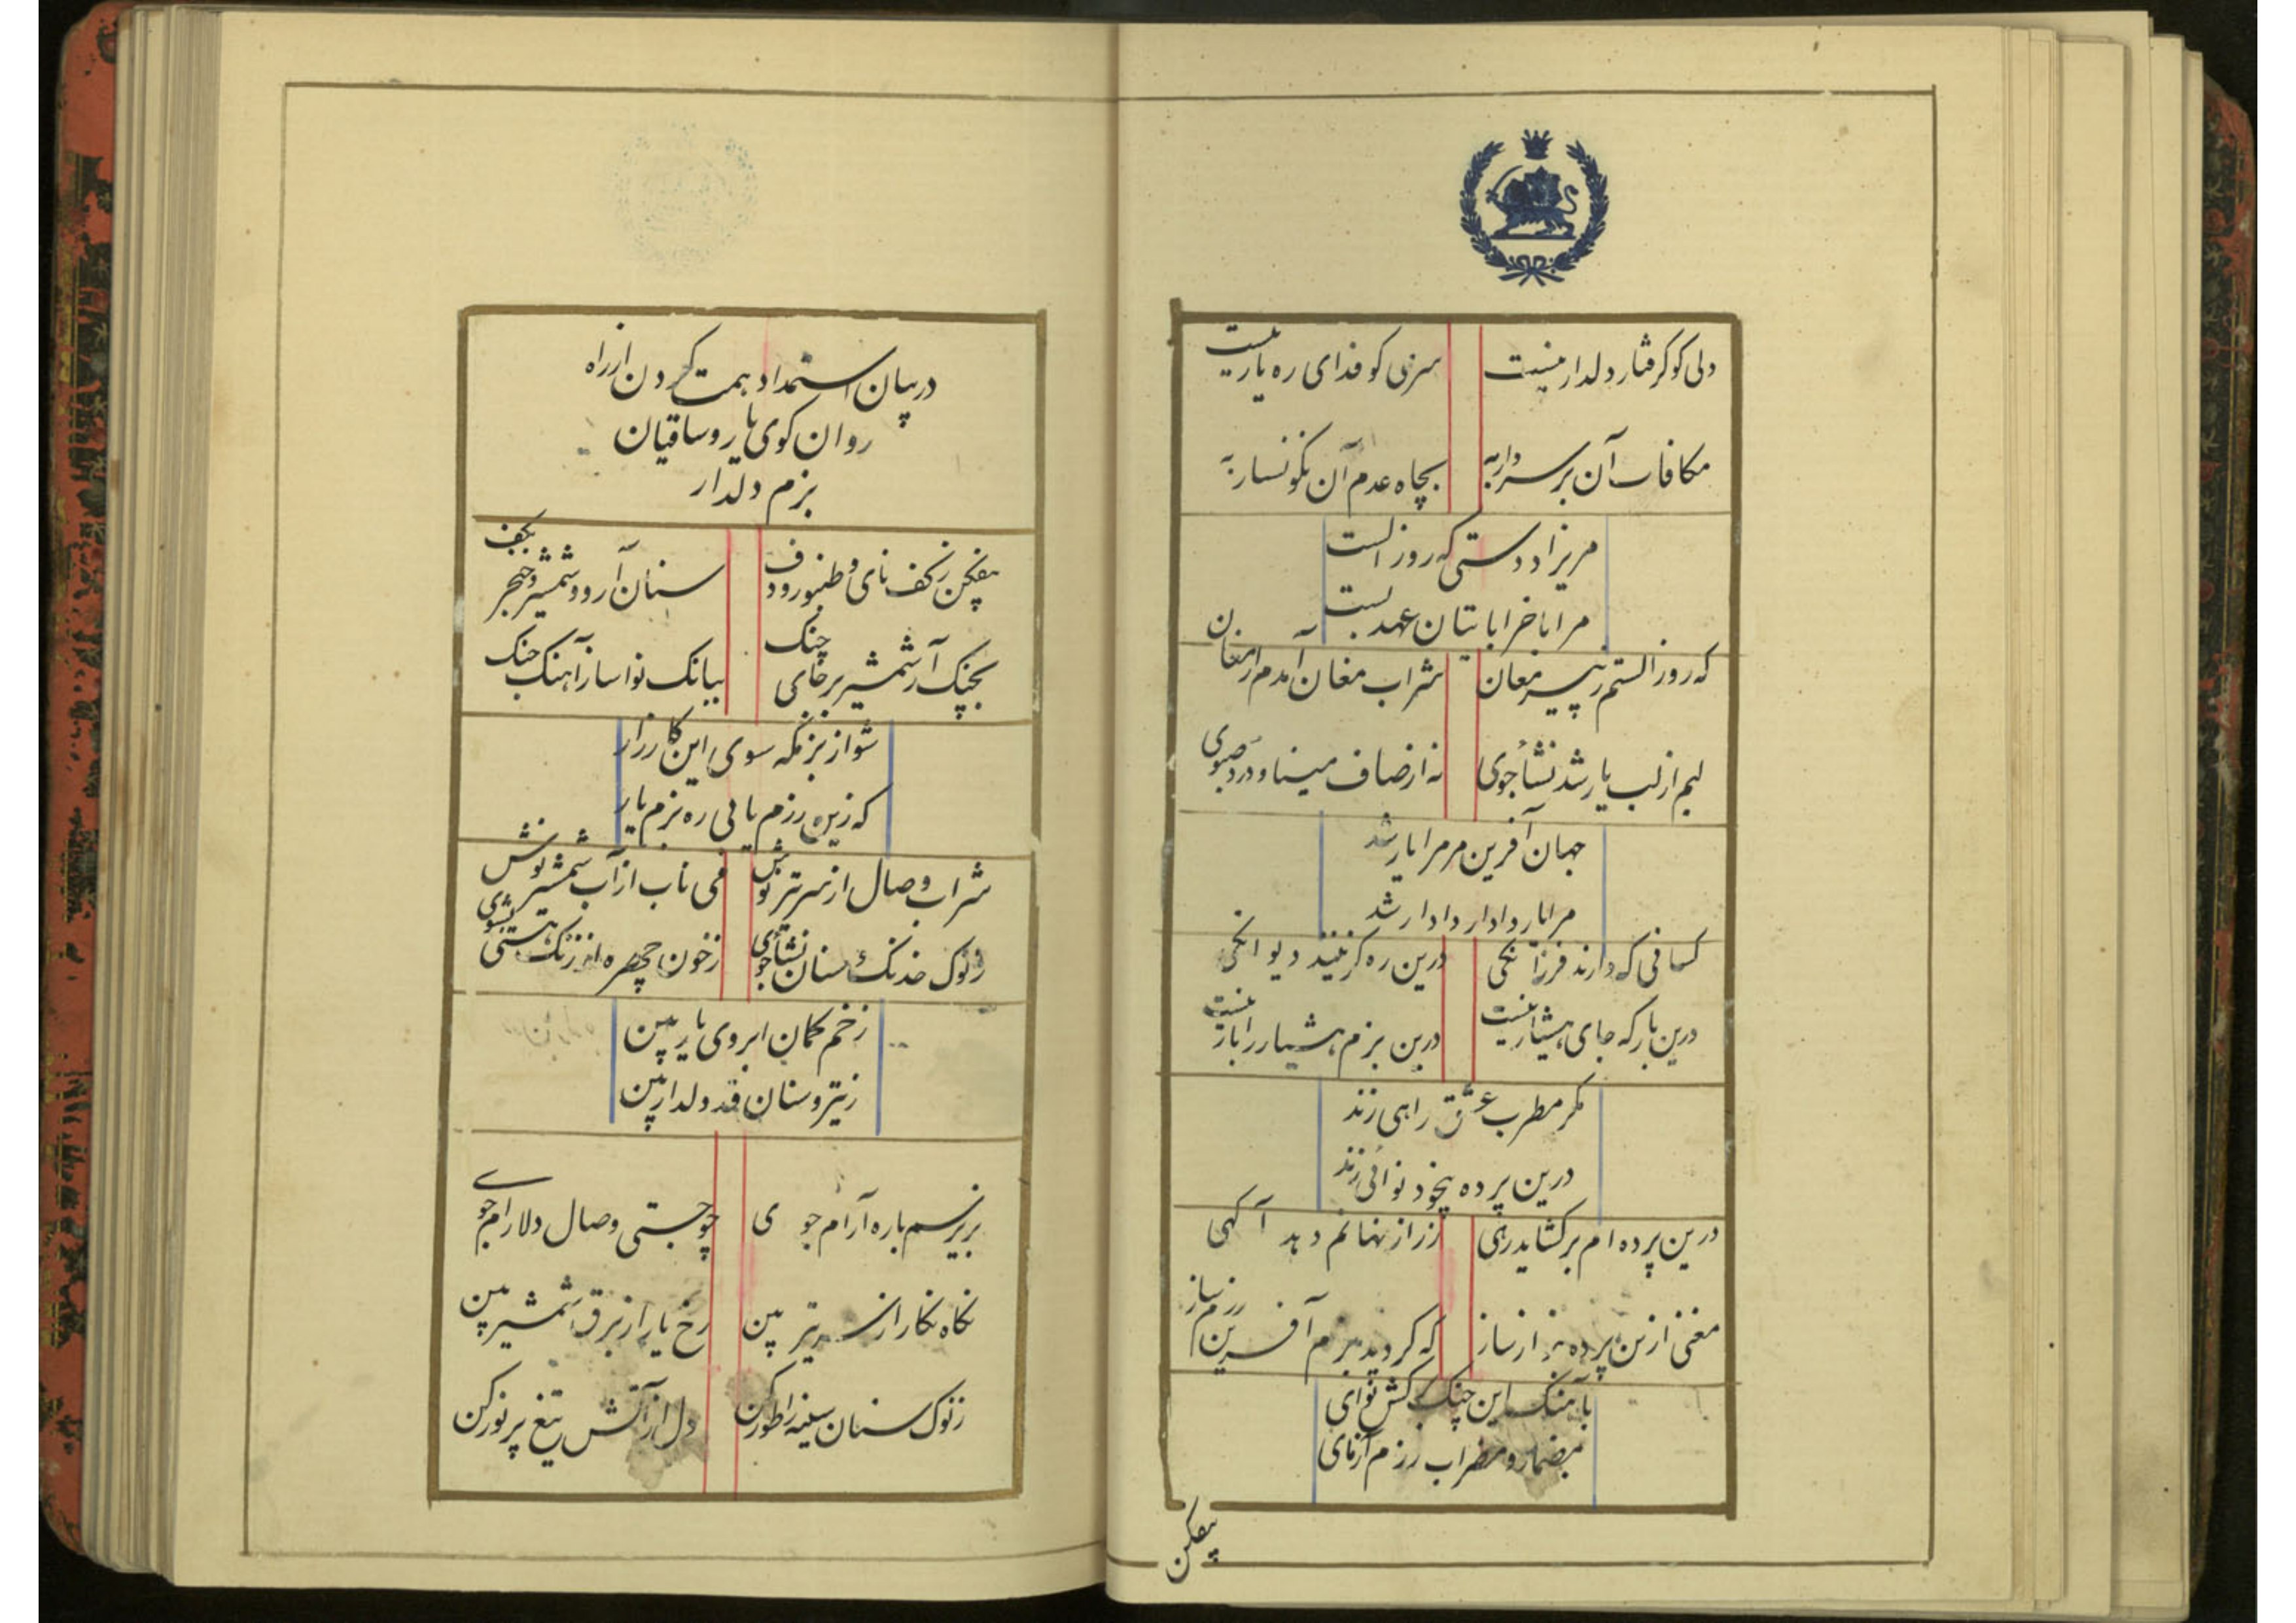 دلی کو گرفتار دلدار نیست
سری کو فدای ره یار نیست
مکافات آن بر سر دار به
بچاه عدم آن نگونسار به
مریزاد دستی که روز الست
مرا با خراباتیان عهد بست
که روز الستم ز پیر مغان
شراب مغان آمدم ارمغان
لبم از لب یار شد نشأ جوی
نه از صاف مینا و درد صبوی
جهان آفرین مر مرا یار شد
مرا یار وادار دادار شد
کسانی که دارند فرزانگی
درین ره گزینند دیوانگی
درین بارگه جای هشیار نیست
درین بزم هشیار را بار نیست
مگر مطرب عشق راهی زند
درین پرده بیخود نوائی زند
درین پرده ام بر گشاید رهی
ز راز نهانم دهد آگهی
مغنی ازین پرده از ساز
که گردید بزم آفرین رزم ساز
بآهنگ این چنگ کش نوای
بمضمار و مضراب رزم آزمای
بیفکن
در بیان استمداد همت کردن از راه
روان کوی یار و ساقیان
بزم دلدار
بیفکن ز کف نای و طنبور و دف
سنان آر و شمشیر و خنجر بکف
بچنگ آر شمشیر بر جای چنگ
ببانگ نوا ساز آهنگ جنگ
شو از بزمگه سوی این کارزار
که زین رزم یابی ره بزم یار
شراب وصال از سر تیر نوش
می ناب از آب شمشیر نوش
ز نوک خدنگ سنان نشأ جوی
ز خون چهره از زنگ هستی بشوی
ز خم کمان ابروی یار بین
ز تیر و سنان قد دلدار بین
بزیر سم باره آرام جوی
چو جستی وصال دلارام جوی
نگاه نگار از سر تیر بین
رخ یار از برق شمشیر بین
ز نوک سنان سینه را طور کن
دل از آتش تیغ پر نور کن